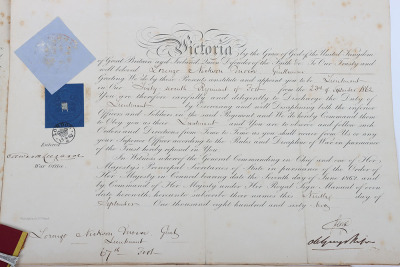 Victoria by the Grace of God of the United Kingdom
of Great Britain and Ireland Queen Defender of the Faith &c. To Our Trusty and
well beloved Lorenzo Gentleman
Greeting We do by these Presents constitute and appoint you to be Lieutenant
in Our Regiment of Foot from the
You are therefore carefully and diligently to Discharge the Duty of
Lieutenant by exercising and well Disciplining both the inferior
Officers and Soldiers in the said Regiment and We do hereby Command them
to Obey you as their Lieutenant And you are to observe and follow such
Orders and Directions from Time to Time as you shall receive from Us or any
your Superior Officer according to the Rules and Discipline of War in pursuance
of the Trust hereby reposed in You
Entered
War Office
In Witness whereof the General Commanding in Chief and one of Her
Majesty's Principal Secretaries of State in pursuance of the Order of
Her Majesty in Council bearing date the Seventh day of June 1862 and
by Command of Her Majesty under Her Royal Sign Manual of even
date herewith have hereunto this day of
September One thousand eight hundred and sixty
Lorenzo
Lieutenant
Foot